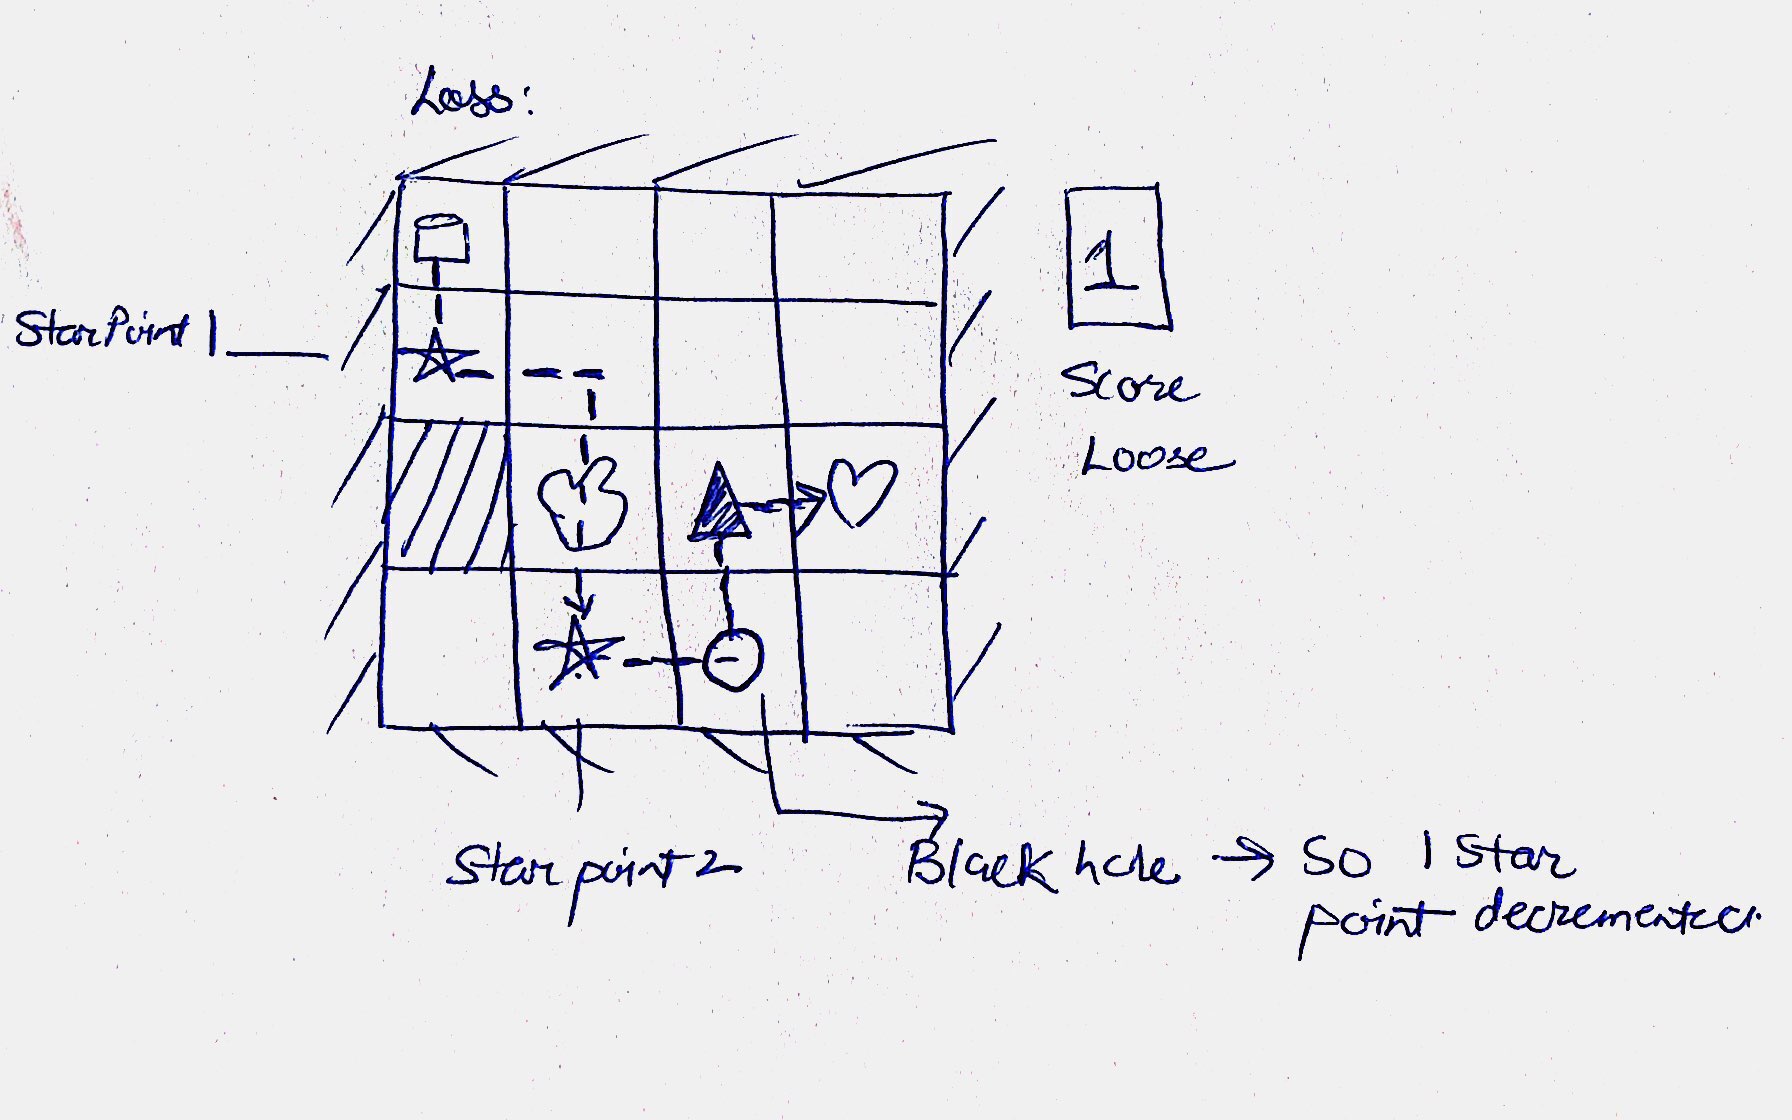 Loss:
Star Point 1
1
Score
Loose
Star point 2
Black hole → So 1 Star
point decremented.